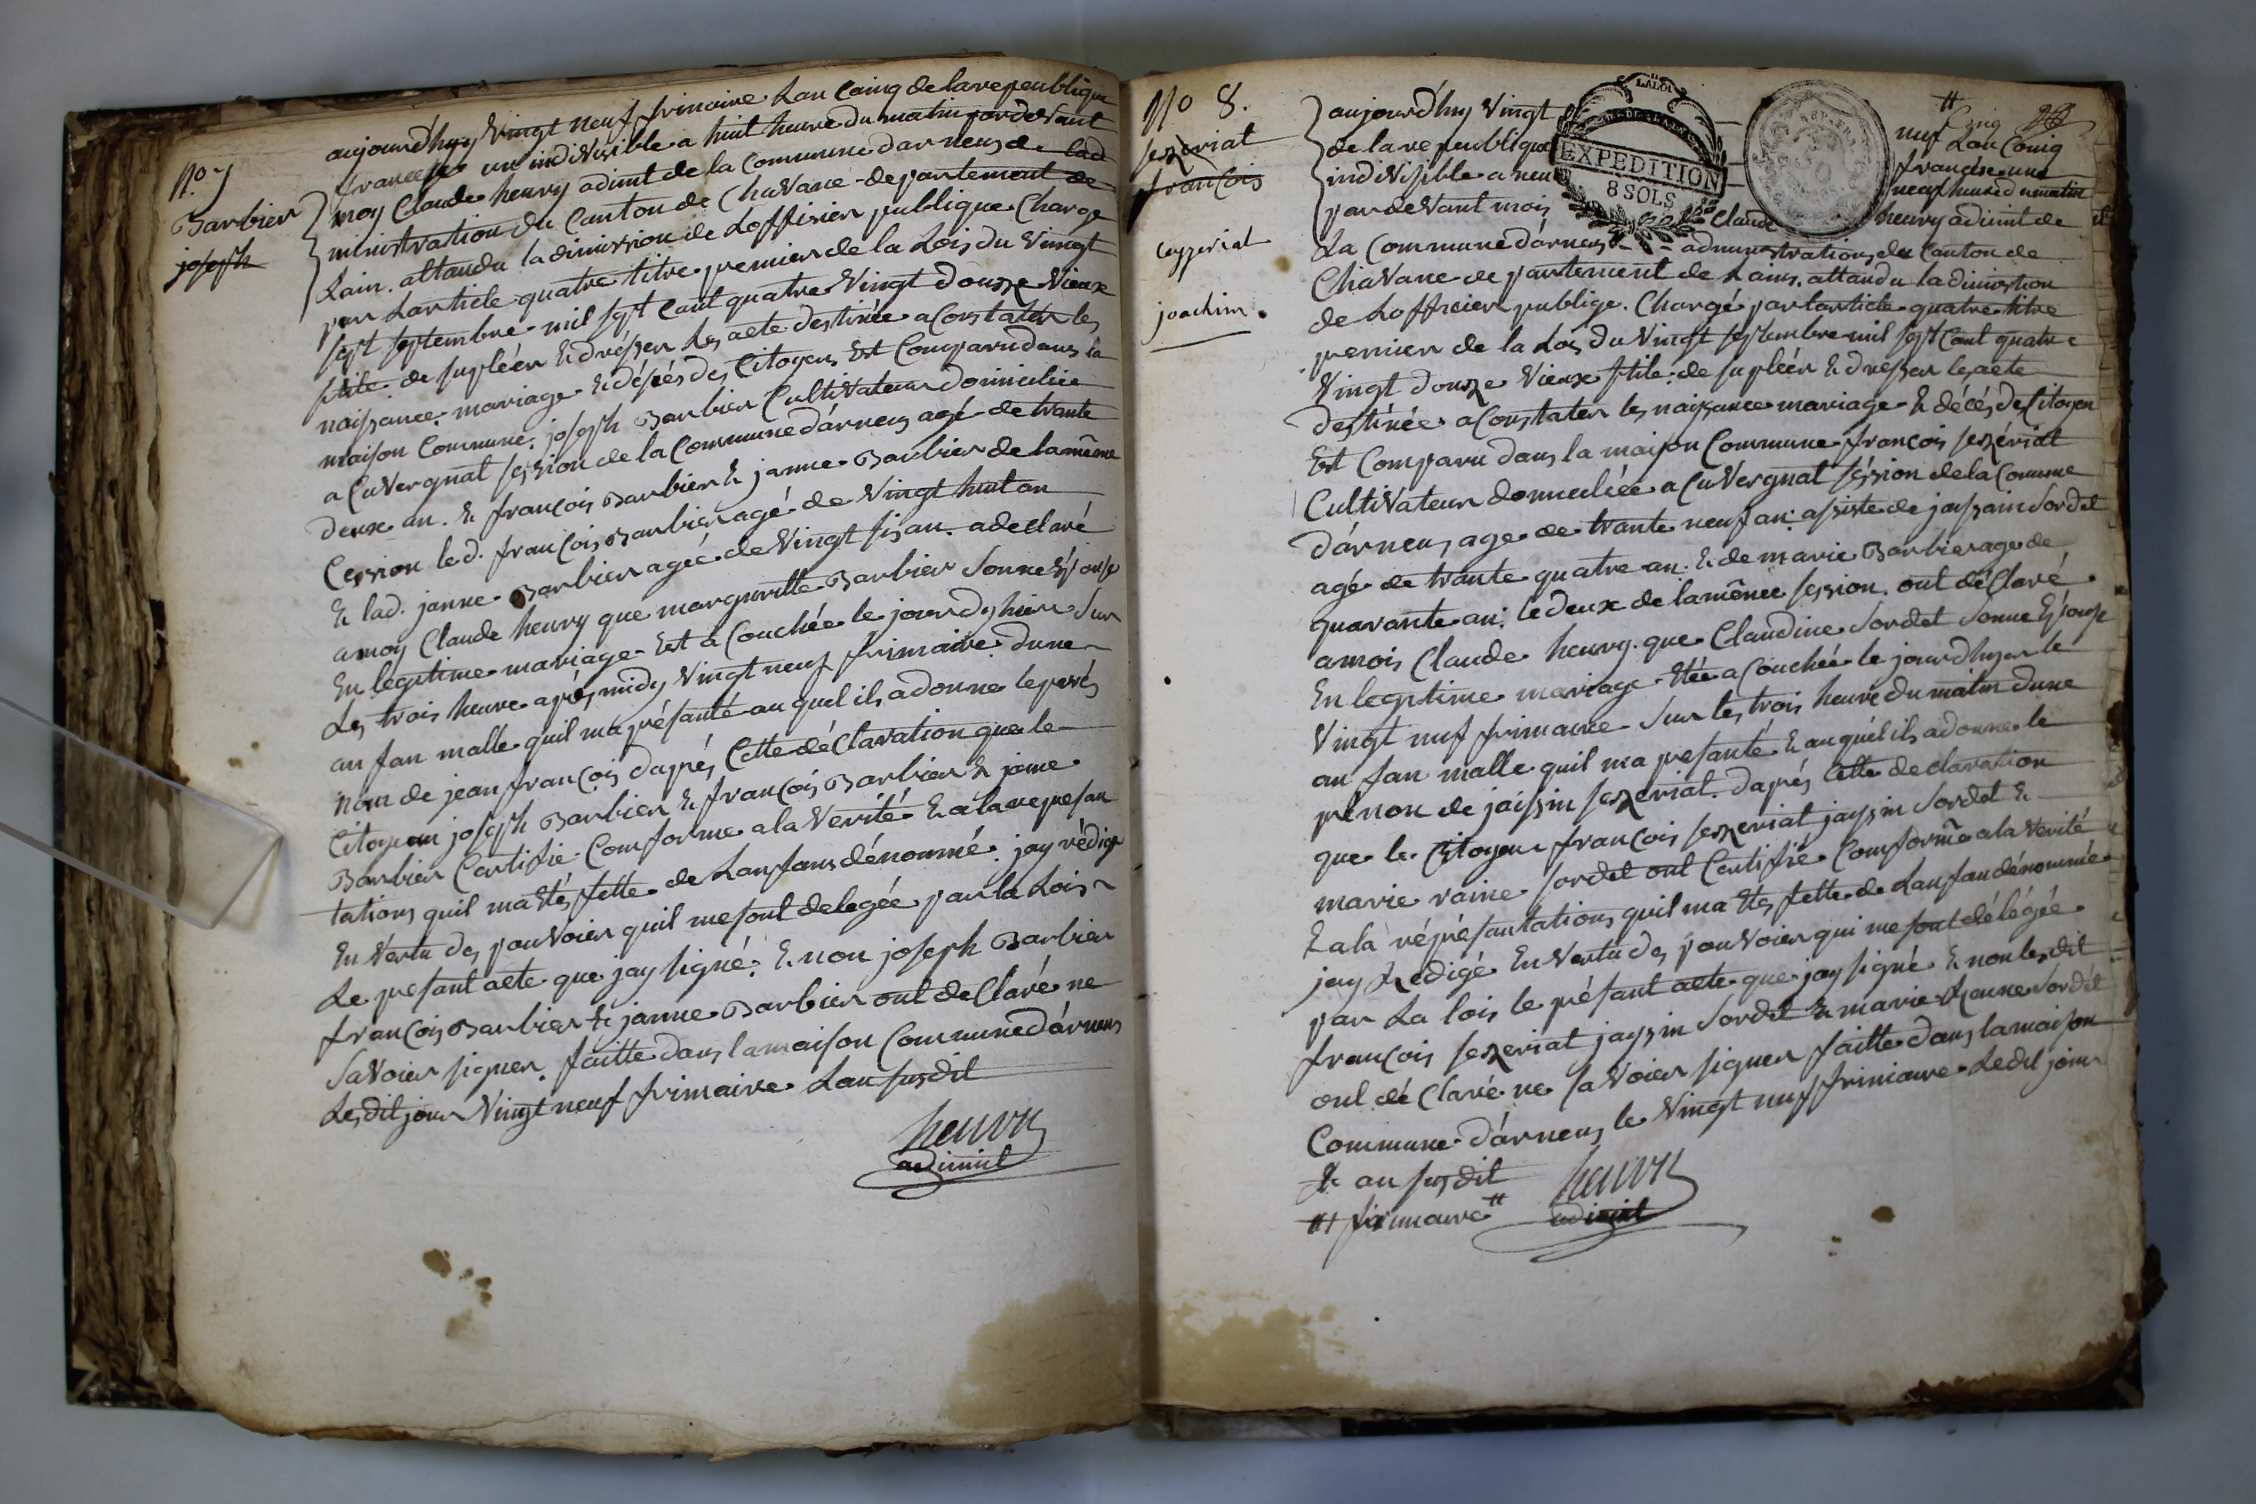 No 7
Barbier
joseph
aujourd'huy Vingt neuf frimaire Lan Cainq de la republique
francaise un indivisible a huit heure du matin pardevant
moy Claude heuvry adimt de la Commune darneus de lad
ministration du Canton de Chavane departement de
Lain. attandu la dimission de Loffisier publique Charge
par Larticle quatre titre premier de la Lois du Vingt
sept septembre mil sept Cant quatre Vingt douze Vieux
stile de supléer & dresser les acte destinée a Constater les
naissance mariage & desés des Citoyens Est Comparu dans la
maison Commune. joseph Barbier Cultivateur domiciliée
a Cuvergnat session de la Commune d'arneus agé de trante
deux an. & francois Barbier & janne Barbier de la même
Cession led. francois Barbier agé de Vingt huit an
& lad. janne Barbier agée de Vingt sis an. a declaré
a moy Claude heuvry que margueritte Barbier sonne Epouse
En legitime mariage Est a Couchée le jour dhier Sur
Les trois heure apres midy Vingt neuf frimaire dune
an fan malle quil ma présanté au quel ils a donne le prenés
nom de jean francois dapres Cette déClaration que le
Citoyen joseph Barbier & francois Barbier & janne
Barbier Certifie Comforme a la Verité & a la represan
tations quil ma étés fette de Lanfans dénommé. jay rédige
En Vertu des pouvoier quil me sont delegée par la Lois
Le presant acte que jay signé. & non joseph Barbier
francois Barbier & janne Barbier ont deClaré ne
Savoier signer. faitte dans la maison Commune d'arneus
Lesdit jour Vingt neuf frimaire Lan susdit
heuvry
adimit
No 8.
sezeriat
francois
ceyzeriat
joachim.
LA LOI
EXPEDITION
8 SOLS
Cinq
aujourd'huy Vingt neuf Lan Cainq
de la republique francaise une
indivisible a neuf heured umatin
par devant mois Claude heuvry adimit de
La Commune d'arneus administrations du Canton de
Chavane de partement de Lains. attandu la dimistion
de Loffisier publige. Chargé par Larticle quatre titre
premier de la Lois du Vingt septembre mil sept Cant quatre
Vingt douze Vieux stile. de supléer & dresser les acte
destinée a Constater les naissance mariage & décés des Citoyen
Est Comparu dans la maison Commune francois sezériat
Cultivateur domiceliée a Cuvergnat session de la Comune
d'arneus age de trante neuf an. assiste de jaissain Sordet
agé de trante quatre an. & de marie Barbier age de
quarante an. le deux de la mêmee session. ont déClaré
a mois Claude heuvry. que Claudine Sordet sonne Epouse
En legitime mariage Etée a Couchée le jour dhuyer le
Vingt neuf frimaire Sur les trois heure du matin dune
an fan malle quil ma presanté & au quél ils a donne le
prénon de jaissin sezeriat. dapres Cette declaration
que le Citoyen francois sezeriat jayssin Sordet &
marie raine Sordet ont Certifié Comforme a la Verité
& a la réprésantations quil ma étés fette de Lanfan dénommée
jay Redigé En Vertu des pouvoier qui me sont délégée
par La lois le présant acte que jay signé & non lesdit
francois sezeriat jayssin Sordet & marie Reanne Sordet
ont dé Claré ne sa Voier signer faitte dans la maison
Commune d'arneus le Vingt neuf frimaire Ledit jour
& an susdit
# frimaire #
heuvry
adimit